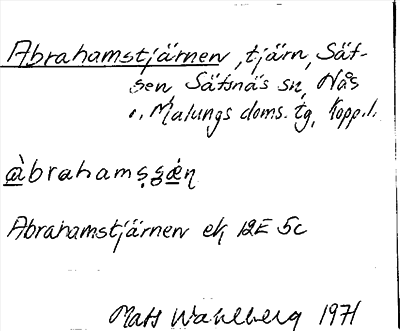 Abrahamstjärnen, tjärn, Sät-
sen, Sätsnäs sn, Nås
o. Malungs doms. tg, Kopp. l.
àbrahamsʂæ̀n
Abrahamstjärnen ek 12E 5c
Mats Wahlberg 1971